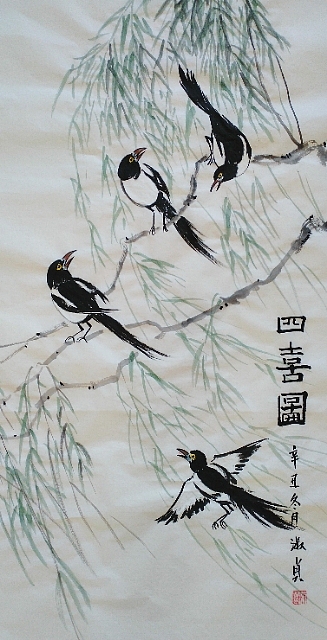 四喜圖
辛丑冬月淑貞